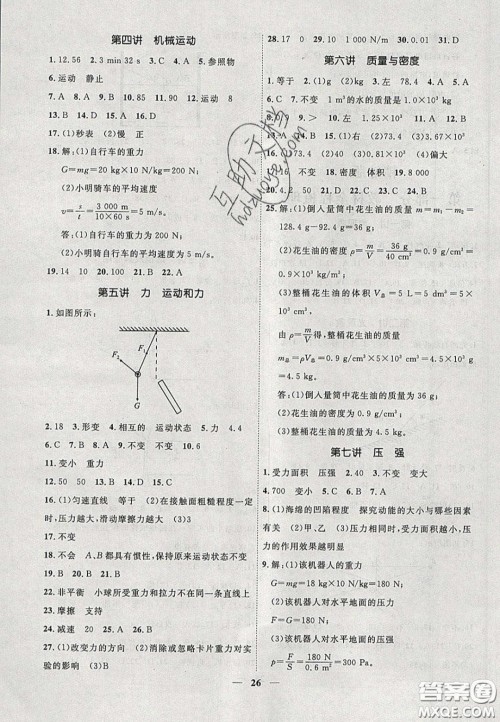 第四讲 机械运动
1.12.56 2.3 min 32 s 3.C 4.A 5.参照物
6.运动 静止
7.A 8.A 9.A 10.A 11.A 12.运动 8
13.B 14.C 15.D 16.D
17.(1)秒表 (2)慢 正
18.解:(1)自行车的重力
G=mg=20 kg×10 N/kg=200 N
(2)小明骑自行车的平均速度
v=s/t=3 000 m/(10×60 s)=5 m/s.
答:(1)自行车的重力为 200 N;
(2)小明骑自行车的平均速度为 5 m/s.
19.14 10 20.51 21.A
第五讲 力 运动和力
1.如图所示:
F₁
F₂
G
2.18 3.形变 4.相互的 运动状态 5.D
6.C 7.B 8.D 9.A 10.不变 不变
11.变小 重力
12.50 50 13.D 14.B 15.C
16.(1)匀速直线 等于 (2)在接触面粗糙程度一
定时,压力越大,滑动摩擦力越大 (3)3
17.不变 变大
18.不会 A、B都具有惯性,保持原来运动状态不变
19.D 20.B 21.B
22.非平衡 小球所受的重力和拉力不在同一直线上
23.摩擦 支持
24.减速 20 25.A 26.B
27.(1)改变力的方向 (2)滑动或忽略卡片重力对实
验的影响 (3)B
28.17 0 29.C 30.0 31.D
第六讲 质量与密度
1.等于 2.(1)g (2)kg 3.左 78.4 4.A
5.C 6.C 7.不变 1 m³的水的质量是1.0×10³ kg
8.0.9 9.> 10.D 11.B 12.C 13.B 14.A
15.(1)右 (2)73.81 (3)0.81 (4)偏大
不变 18.C 19.8 000
20.4.2 50 21.D 22.C 23.D 24.B
25.解:(1)倒人量筒中花生油的质量 m=m₁−m₂=
128.4 g−92.4 g=36 g
(2)花生油的密度 ρ=m/V=36 g/40 cm³=0.9 g/cm³=
0.9×10³ kg/m³
(3)整桶花生油的体积 V总=5 L=5 dm³=5×
10³ cm³
由 ρ=m/V 得,整桶花生油的质量
m总=ρV总=0.9 g/cm³×5×10³ cm³=4.5×10³ g
=4.5 kg.
答:(1)倒人量筒中花生油的质量为 36 g;
(2)花生油的密度为 0.9 g/cm³;
(3)整桶花生油的质量为 4.5 kg.
第七讲 压 强
1.受力面积 压强 2.C 3.不变 变大
4.700 5.B 6.B 7.C
8.(1)海绵的凹陷程度 探究动能的大小与哪些因素
有关 (2)甲、乙 (3)压力越大,受力面积越小,压
力的作用效果越明显
9.解:(1)该机器人的重力:
G=mg=18 kg×10 N/kg=180 N
(2)该机器人对水平地面的压力:
F=G=180 N
(3)该机器人对水平地面的压强:
p=F/S=180 N/0.6 m²=300 Pa.
26
互助文档
答案圈
MXQE.COM